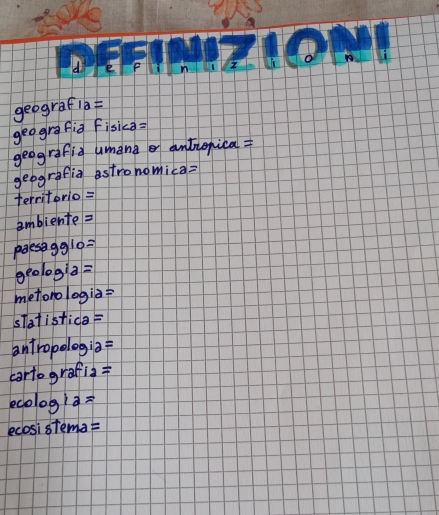 DEFINIZIONI
definizioni
geografia=
geografia fisica=
geografia umana o antropica=
geografia astronomica=
territorio=
ambiente=
paesaggio=
geologia=
metorologia=
statistica=
antropologia=
cartografia=
ecologia=
ecosistema=